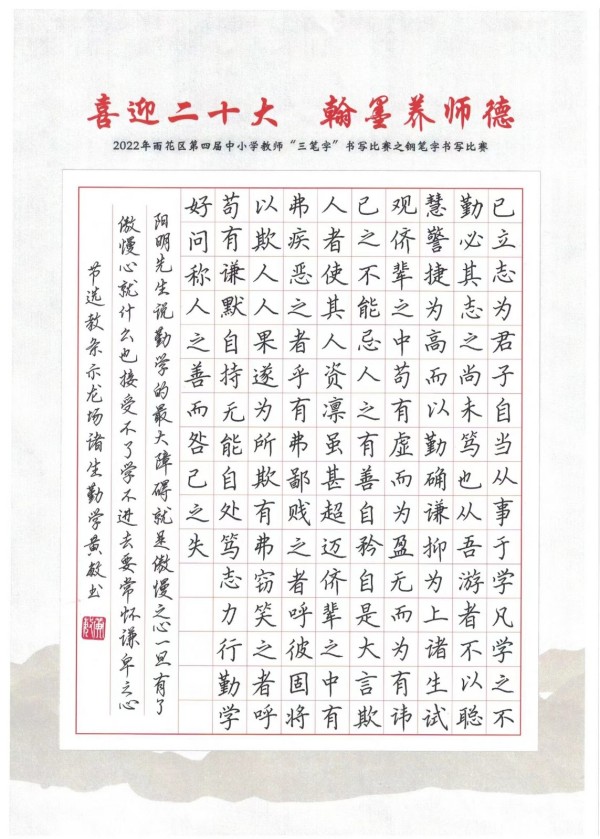 喜迎二十大 翰墨养师德
2022年雨花区第四届中小学教师“三笔字”书写比赛之钢笔字书写比赛
已立志为君子自当从事于学凡学之不
勤必其志之尚未笃也从吾游者不以聪
慧警捷为高而以勤确谦抑为上诸生试
观侪辈之中苟有虚而为盈无而为有讳
已之不能忌人之有善自矜自是大言欺
人者使其人资凛虽甚超迈侪辈之中有
弗疾恶之者乎有弗鄙贱之者呼彼固将
以欺人人果遂为所欺有弗窃笑之者呼
苟有谦默自持无能自处笃志力行勤学
好问称人之善而咎己之失
阳明先生说勤学的最大障碍就是傲慢之心一旦有了
傲慢心就什么也接受不了学不进去要常怀谦卑之心
节选教条示龙场诸生勤学黄敏书